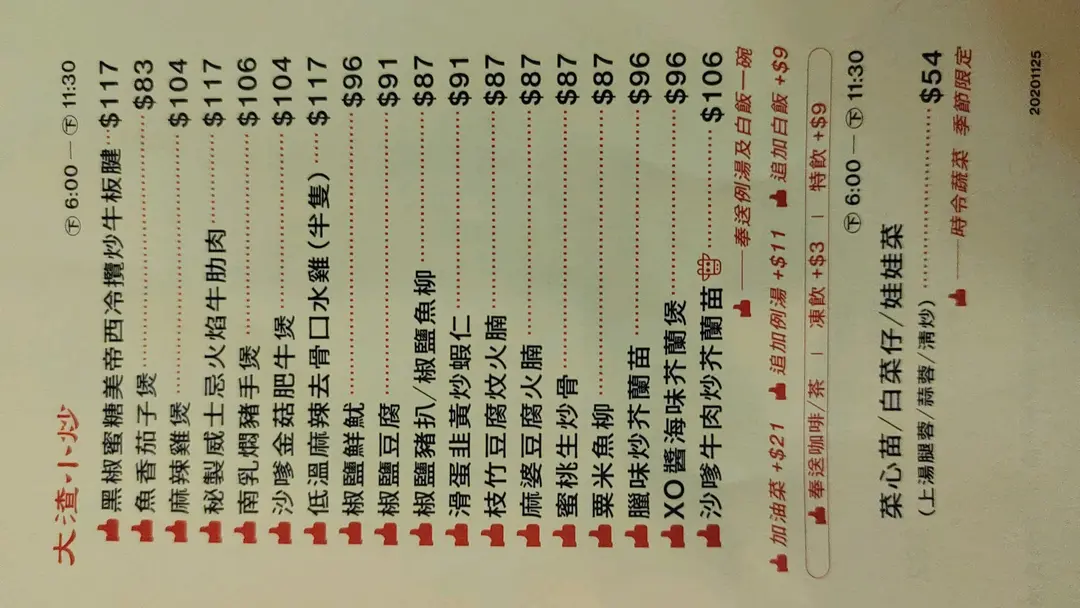 大渣小炒
下 6:00 — 下 11:30
黑椒蜜糖美帝西冷攬炒牛板腱 $117
魚香茄子煲 $83
麻辣雞煲 $104
秘製威士忌火焰牛肋肉 $117
南乳燜豬手煲 $106
沙嗲金菇肥牛煲 $104
低溫麻辣去骨口水雞(半隻) $117
椒鹽鮮魷 $96
椒鹽豆腐 $91
椒鹽豬扒/椒鹽魚柳 $87
滑蛋韭黃炒蝦仁 $91
枝竹豆腐炆火腩 $87
麻婆豆腐火腩 $87
蜜桃生炒骨 $87
粟米魚柳 $87
臘味炒芥蘭苗 $96
XO醬海味芥蘭煲 $96
沙嗲牛肉炒芥蘭苗 $106
奉送例湯及白飯一碗
加油菜 +$21 追加例湯 +$11 追加白飯 +$9
奉送咖啡/茶 | 凍飲 +$3 | 特飲 +$9
下 6:00 — 下 11:30
菜心苗/白菜仔/娃娃菜 $54
(上湯腿蓉/蒜蓉/清炒)
時令蔬菜 季節限定
20201125